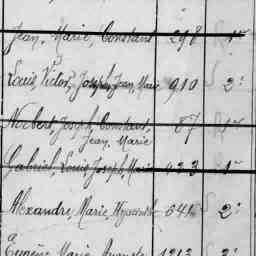 Jean, Marie, Constant 298 1er
Louis, Victor, Joseph, Jean, Marie 910 2e
Norbert, Joseph, Constant, 87 1er
Jean, Marie
Gabriel, Louis Joseph, Marie 423 1er
Alexandre, Marie, Hyacinthe 641 2e
Eugène, Marie, Auguste 1213 2e